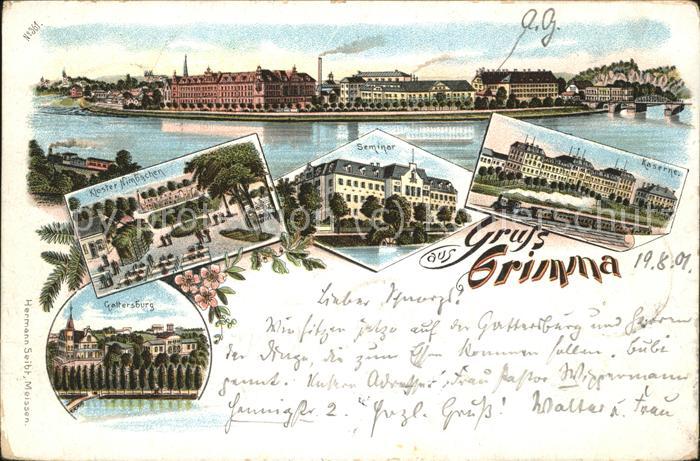 No 361.
A. G.
Kloster Nimbschen
Seminar
Kaserne.
Gruss
aus
Grimma
19.8.01
Gattersburg
Lieber
Wir sitzen jetzt auf der Gattersburg und
der Dinge die zum Essen kommen sollen.
Unsere Adresse: Frau Pastor Wippermann
2. Herzl. Gruß! Walter u. Frau
Hermann Seibt, Meissen.